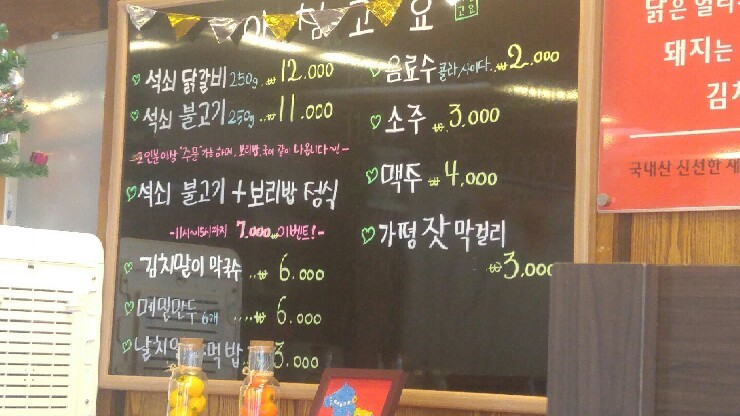 아침고요
고요
석쇠 닭갈비 250g ₩12.000
석쇠 불고기 250g ₩11.000
석쇠 불고기 + 보리밥 정식
-11시~15시까지 7.000₩ 이벤트!-
김치말이 막국수 ..₩ 6.000
메밀만두 6개 ...₩ 6.000
3.000
음료수 콜라,사이다..₩2.000
소주 ₩3.000
맥주 ₩4.000
가평 잣 막걸리
₩3.000
닭은
돼지는
김치
국내산 신선한